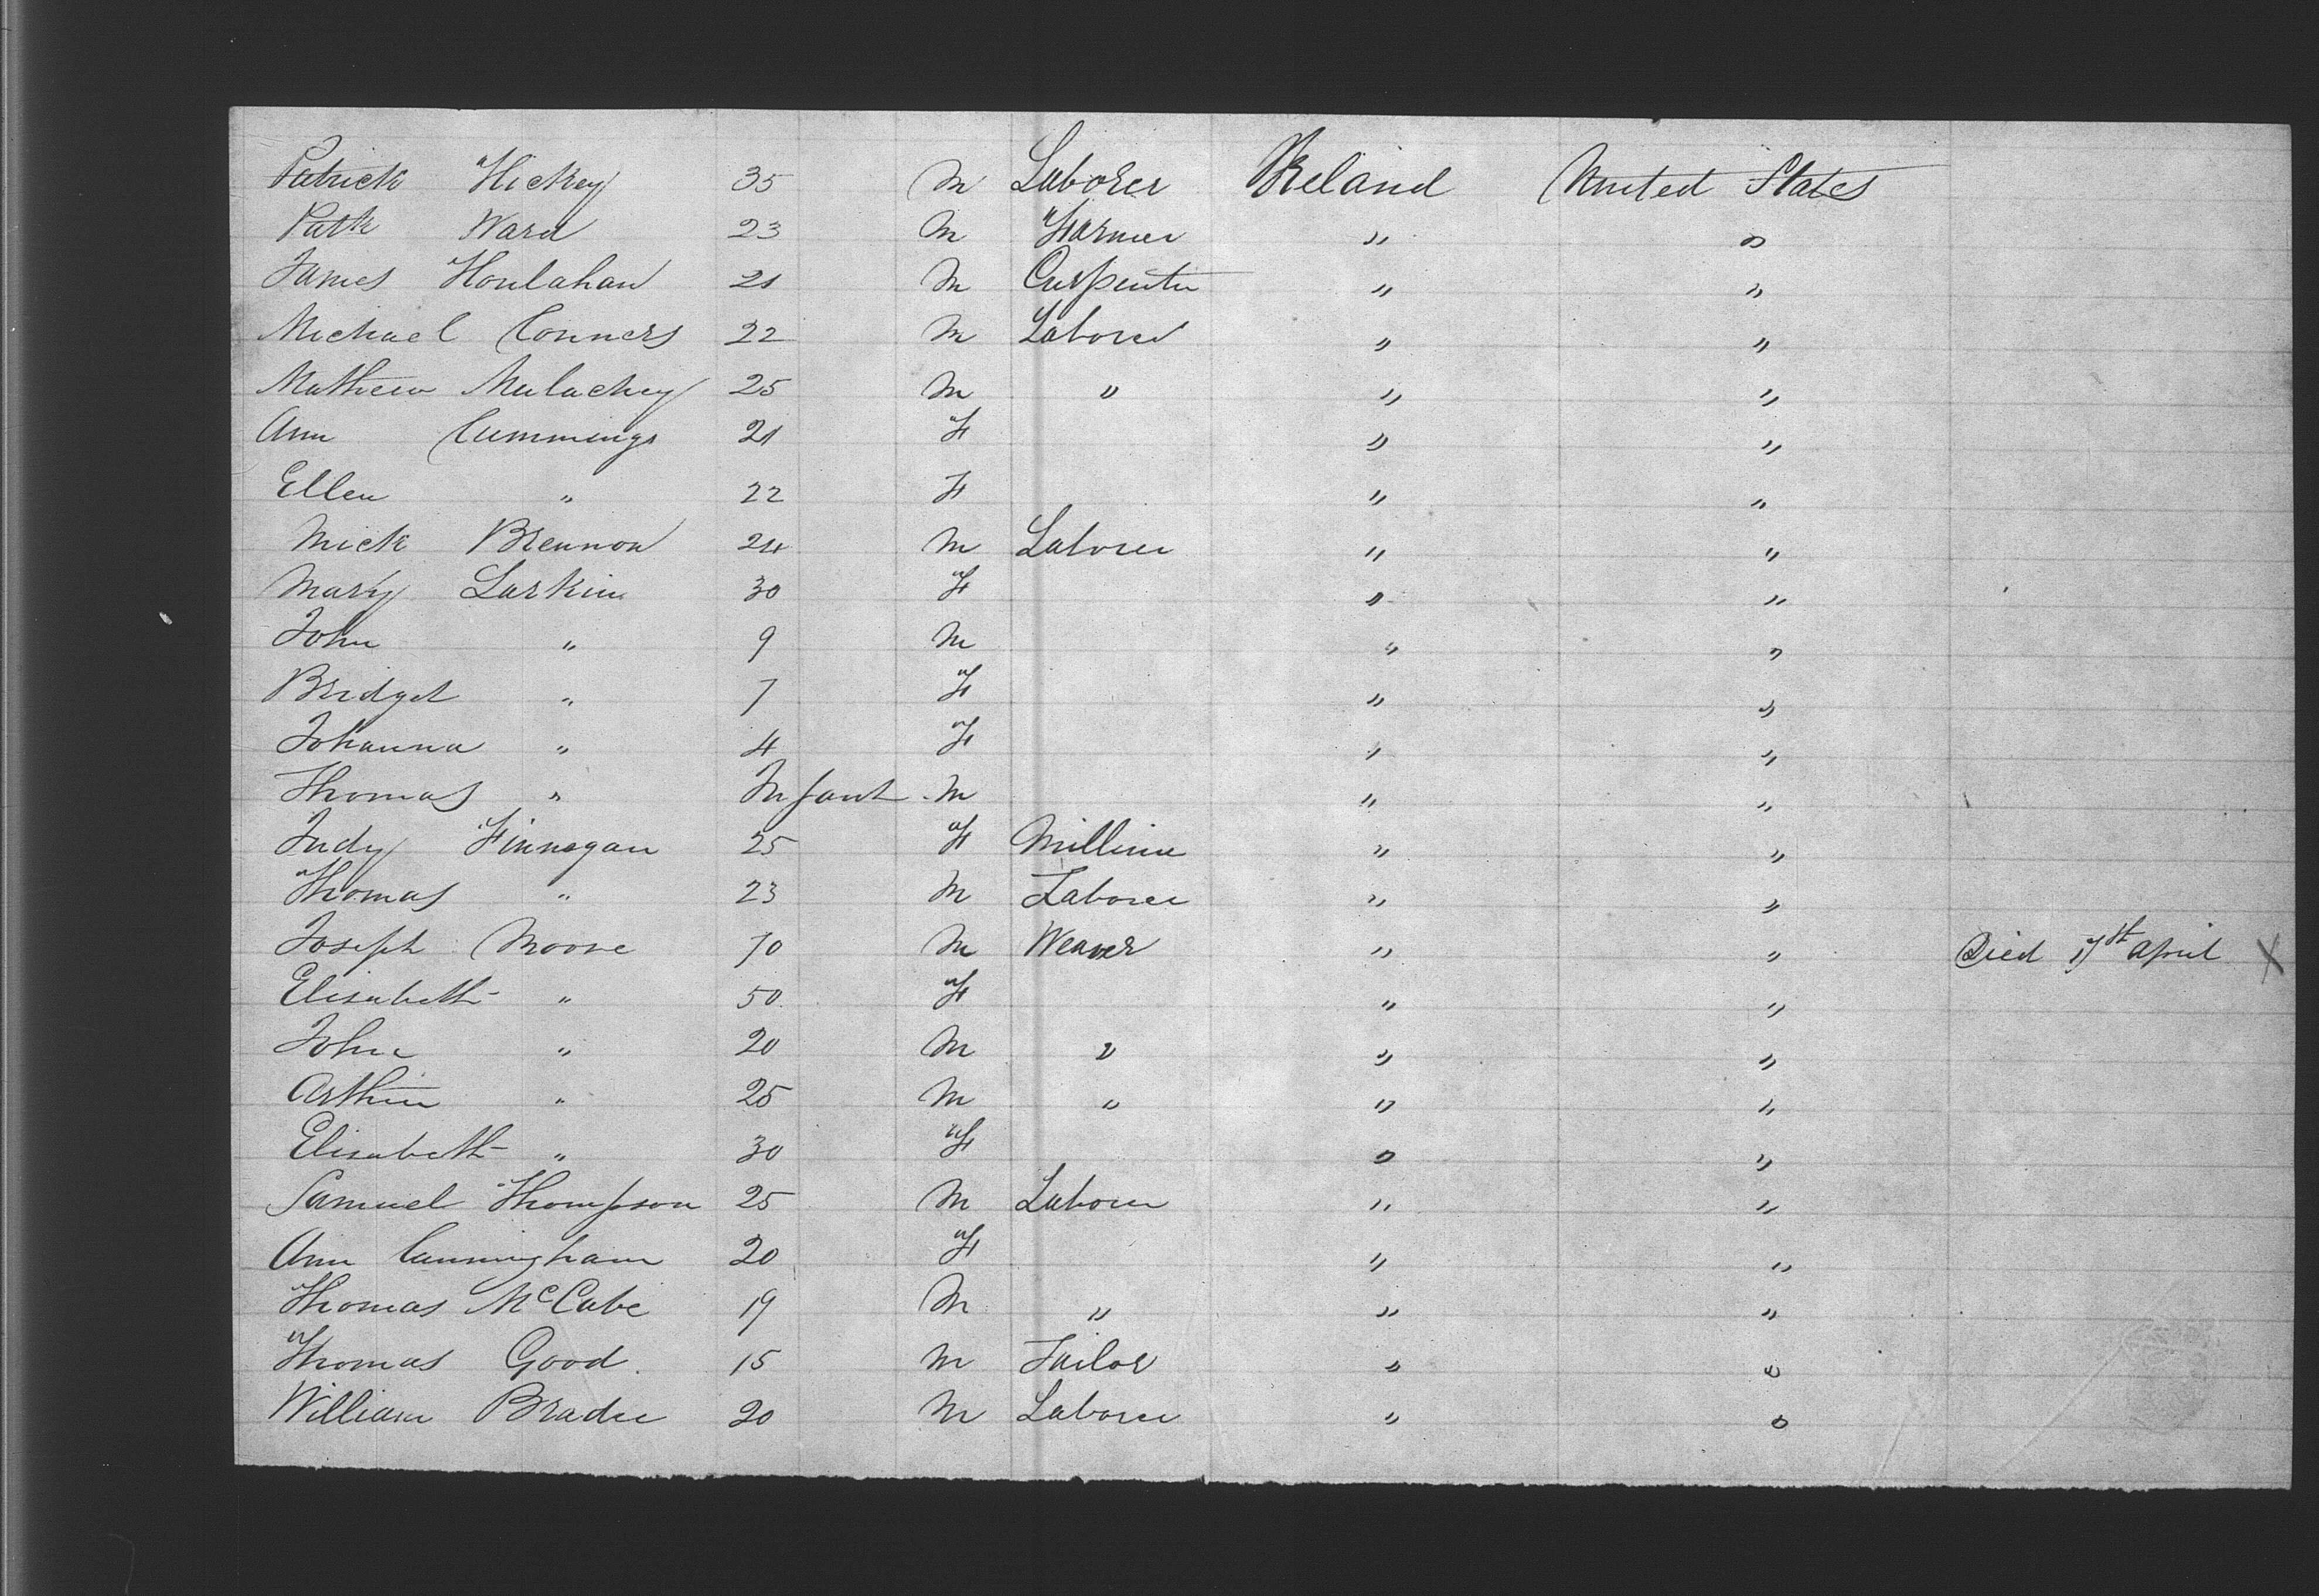 Patrick Hickey 35 M Laborer Ireland United States
Patk Ward 23 M Farmer " "
James Houlahan 21 M Carpenter " "
Michael Conners 22 M Laborer " "
Mathew Mulachey 25 M " " "
Ann Cummings 21 F " "
Ellen " 22 F " "
Mick Brennon 24 M Laborer " "
Mary Larkin 30 F " "
John " 9 M " "
Bridget " 7 F " "
Johanna " 4 F " "
Thomas " Infant M " "
Judy Finnegan 25 F Milliner " "
Thomas " 23 M Laborer " "
Joseph Moore 70 M Weaver " " Died April X
Elisabeth " 50 F " "
John " 20 M " " "
Arthur " 25 M " " "
Elisabeth " 30 F " "
Samuel Thompson 25 M Laborer " "
Ann Cunningham 20 F " "
Thomas McCabe 19 M " " "
Thomas Good 15 M Tailor " "
William 20 M Laborer " "